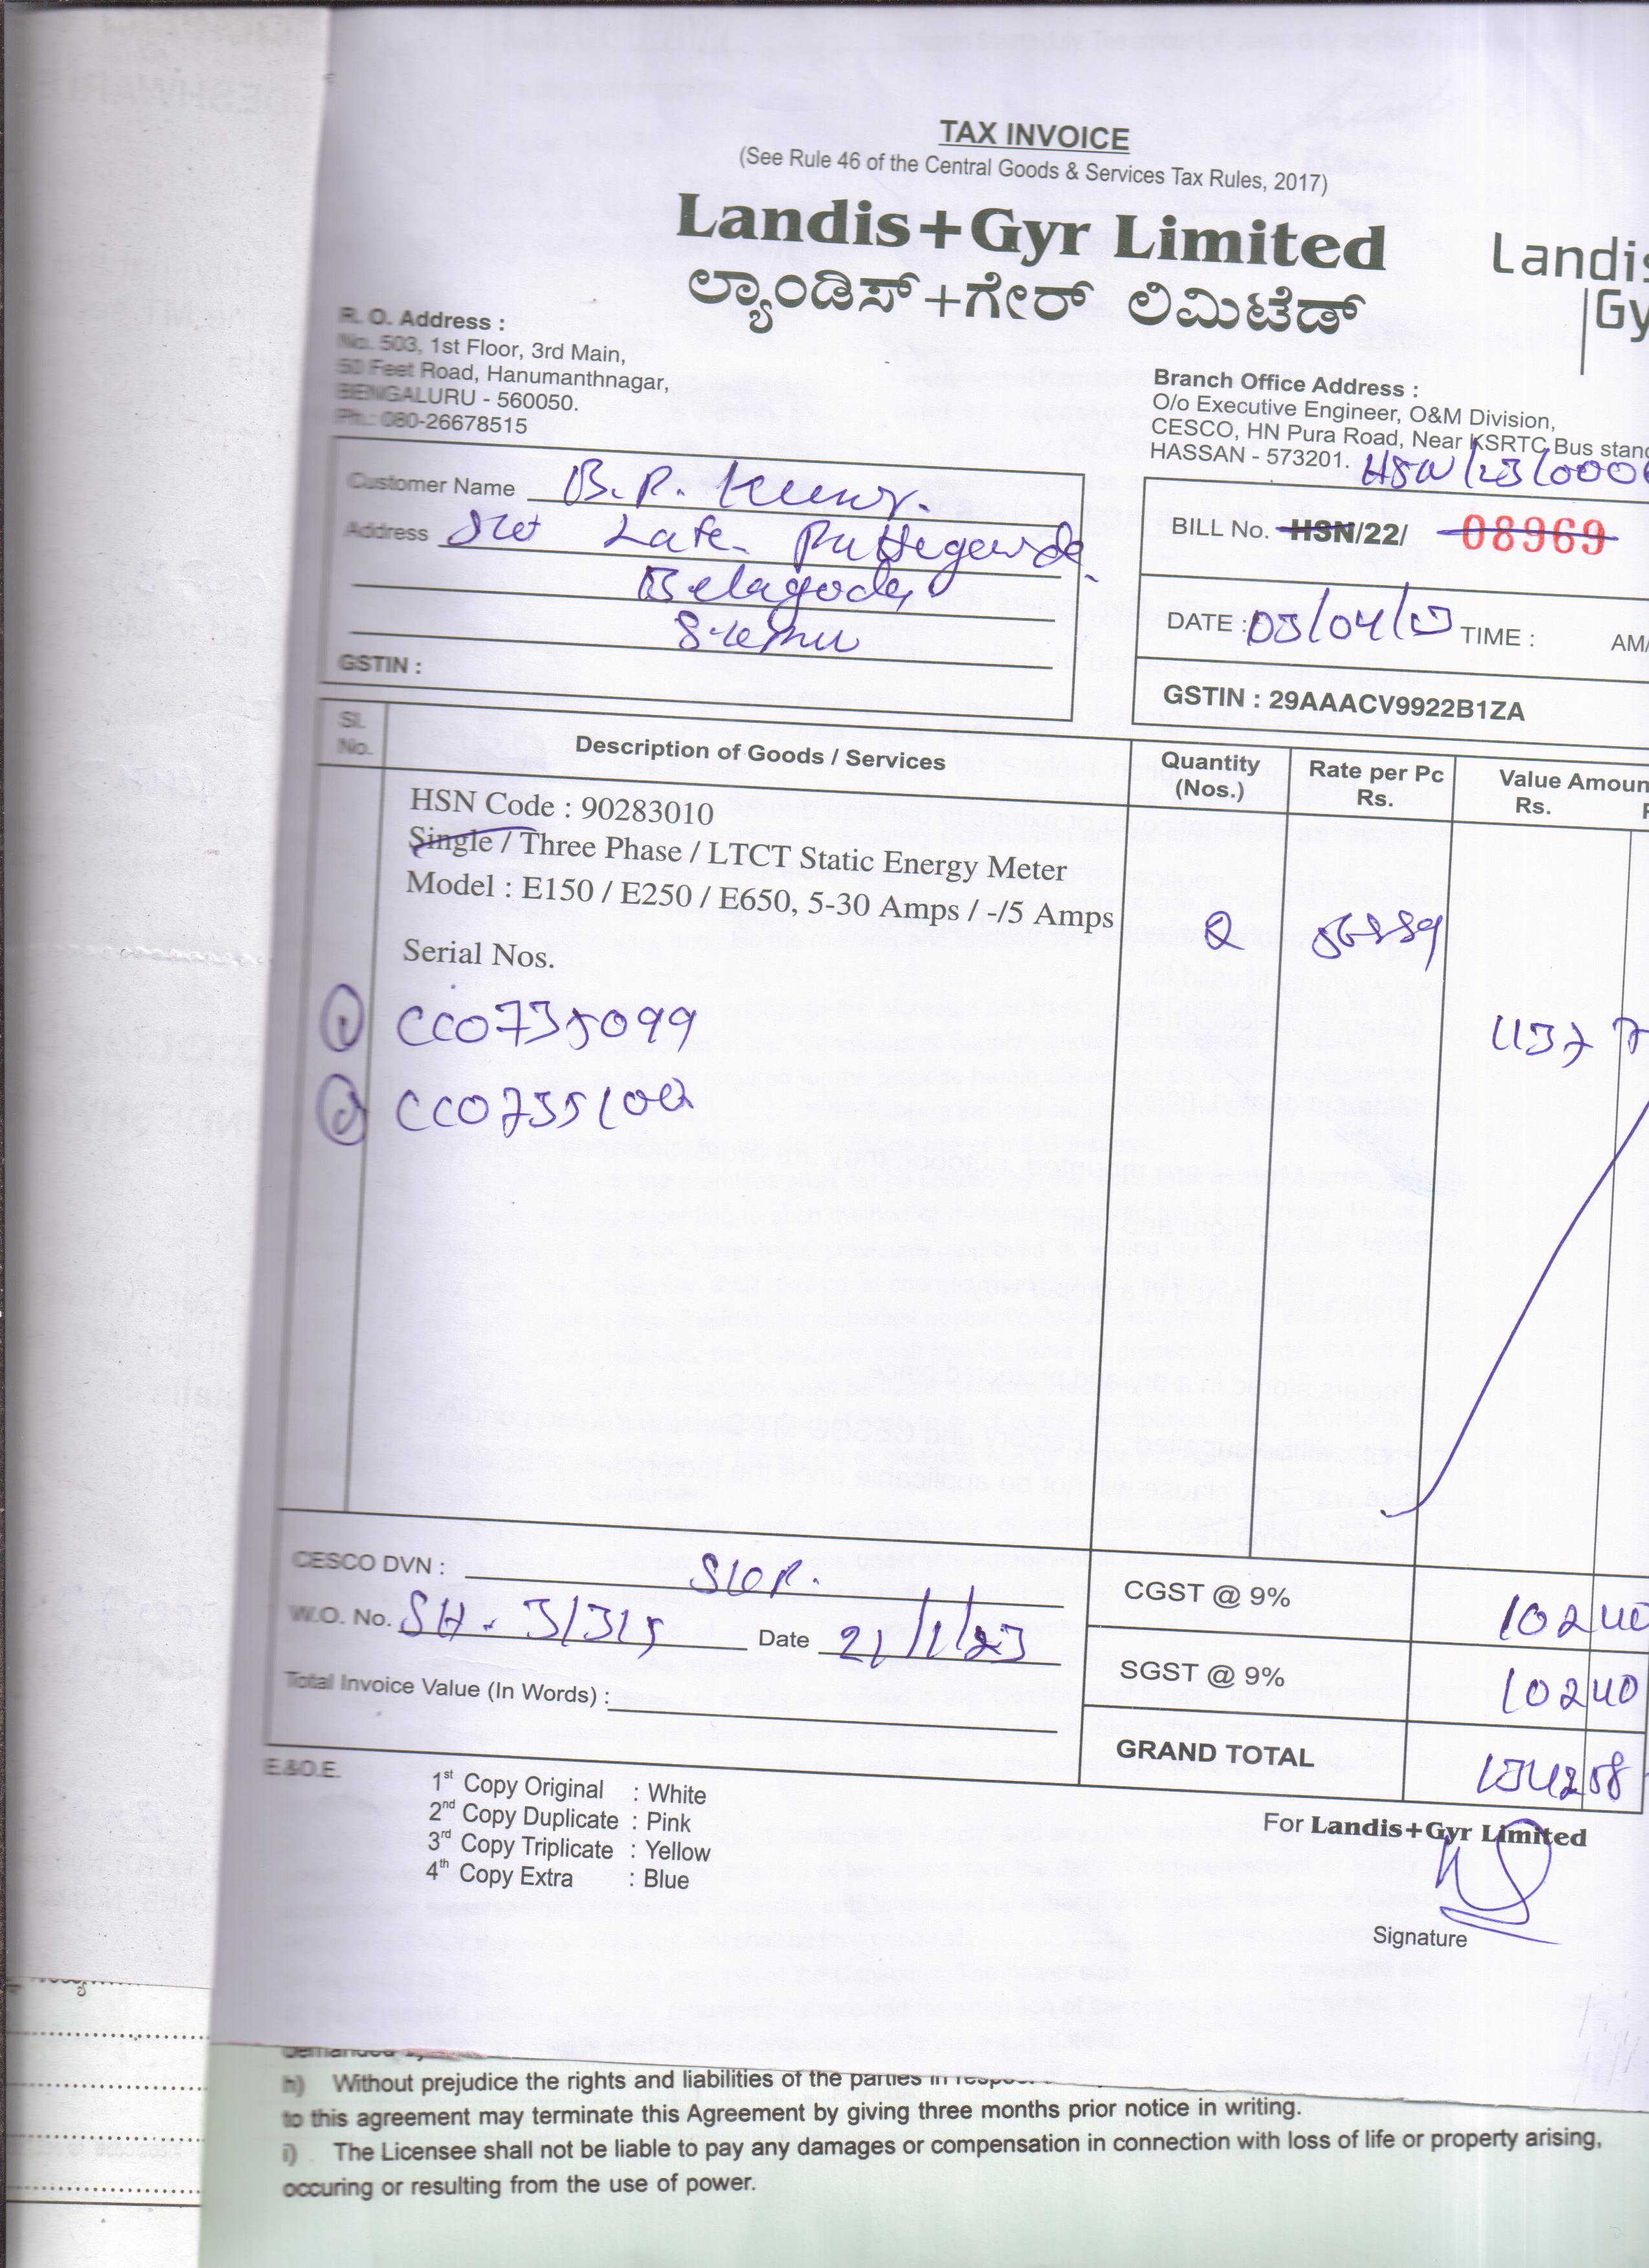 TAX INVOICE
(See Rule 46 of the Central Goods & Services Tax Rules, 2017)
Landis+Gyr Limited
ಲ್ಯಾಂಡಿಸ್+ಗೇರ್ ಲಿಮಿಟೆಡ್
Landis
Gy
R. O. Address :
No. 503, 1st Floor, 3rd Main,
50 Feet Road, Hanumanthnagar,
BENGALURU - 560050.
Ph.: 080-26678515
Branch Office Address :
O/o Executive Engineer, O&M Division,
CESCO, HN Pura Road, Near KSRTC Bus stand
HASSAN - 573201.
Customer Name B.R.
Address Late. Puttegowda
Belagodu
GSTIN :
BILL No. HSN/22/ 08969
DATE : 03/04/23 TIME : AM/
GSTIN : 29AAACV9922B1ZA
Sl. No. Description of Goods / Services Quantity (Nos.) Rate per Pc Rs. Value Amoun Rs.
HSN Code : 90283010
Single / Three Phase / LTCT Static Energy Meter
Model : E150 / E250 / E650, 5-30 Amps / -/5 Amps
2
Serial Nos.
1 CC0735099
2 CC0735102
CESCO DVN :
W.O. No. SH - 3/315 Date 21/1/23
Total Invoice Value (In Words) :
CGST @ 9% 10240
SGST @ 9% 10240
GRAND TOTAL 134258
E.&O.E.
1st Copy Original : White
2nd Copy Duplicate : Pink
3rd Copy Triplicate : Yellow
4th Copy Extra : Blue
For Landis+Gyr Limited
Signature
h) Without prejudice the rights and liabilities of the parties in
to this agreement may terminate this Agreement by giving three months prior notice in writing.
i) The Licensee shall not be liable to pay any damages or compensation in connection with loss of life or property arising,
occuring or resulting from the use of power.